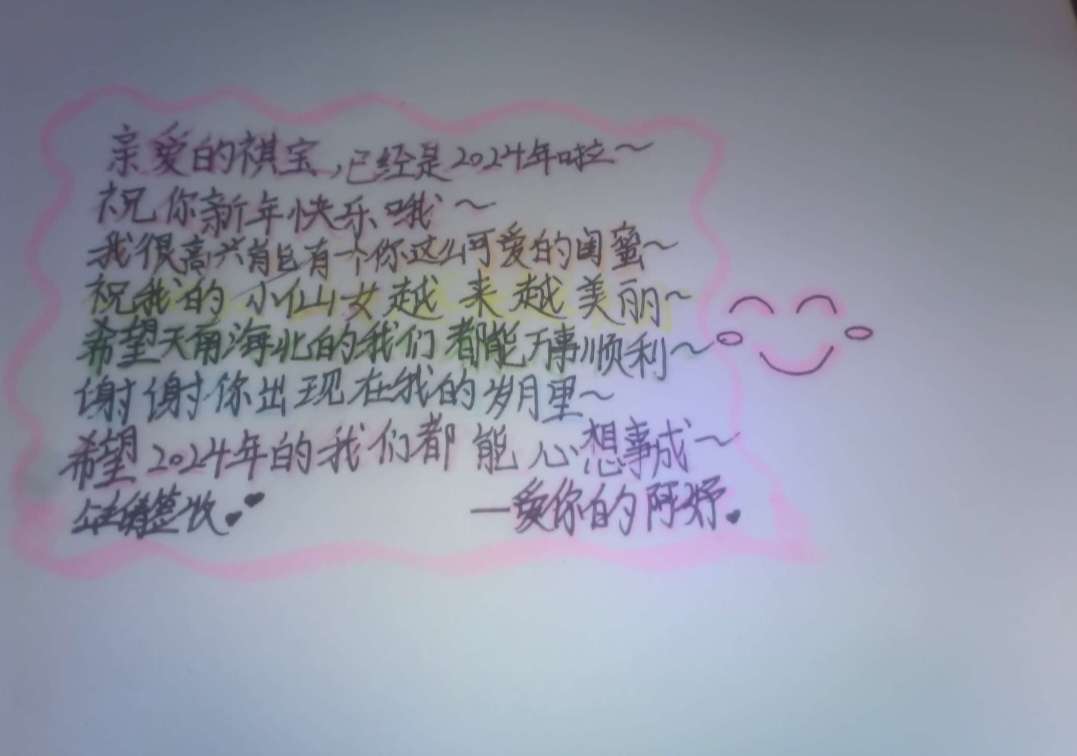 亲爱的祺宝,已经是2024年啦~
祝你新年快乐哦~
我很高兴能有一个你这么可爱的闺蜜~
祝我的小仙女越来越美丽~
希望天南海北的我们都能万事顺利~
谢谢你出现在我的岁月里~
希望2024年的我们都能心想事成~
签收
—爱你的阿妤